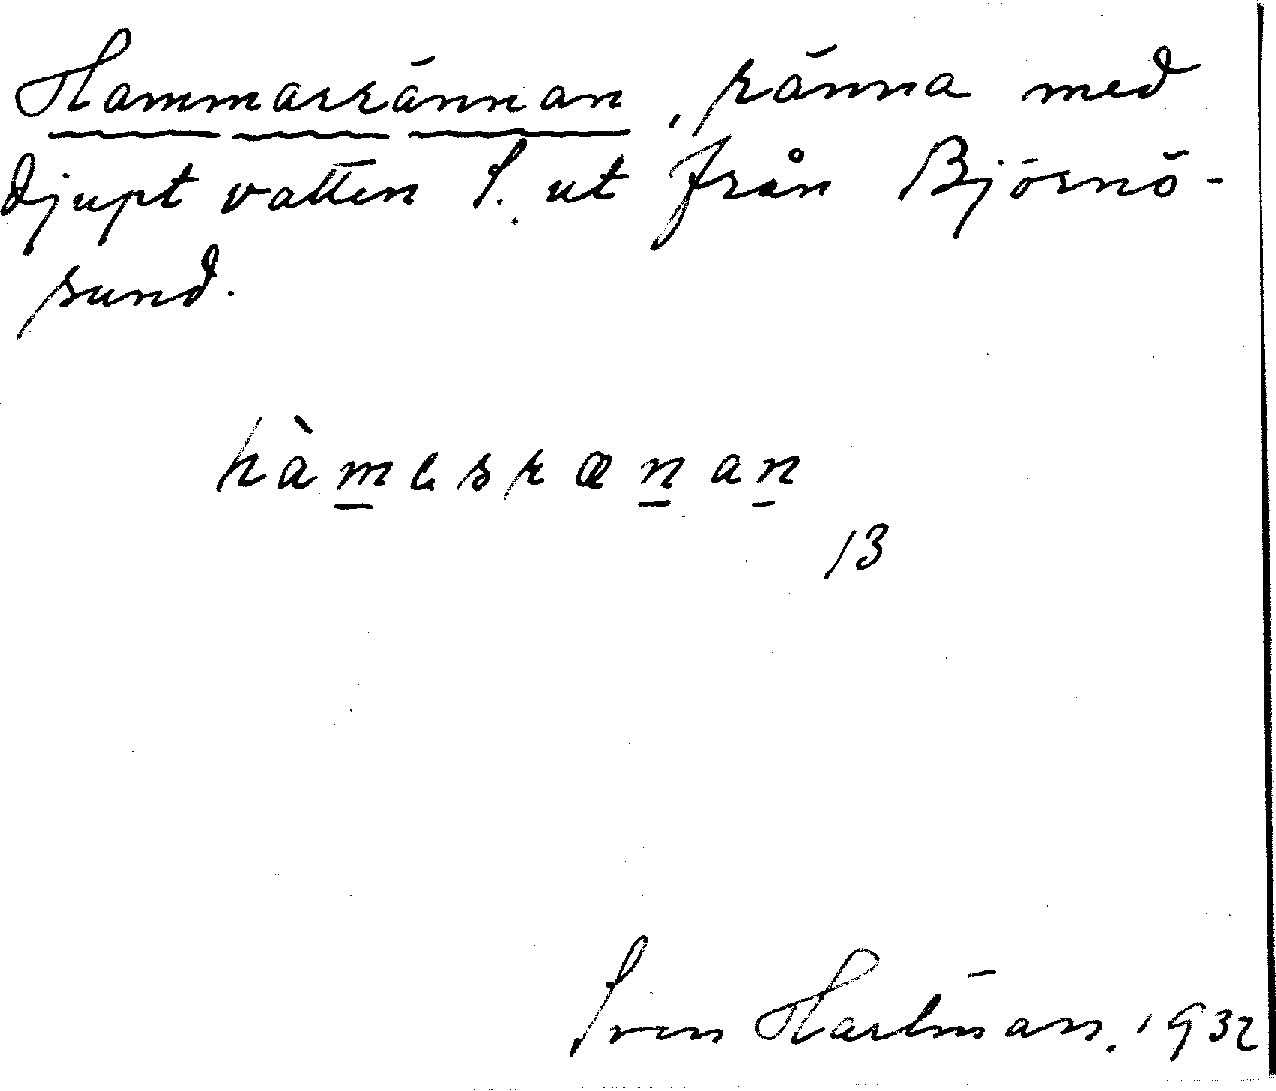 Hammarrännan, ränna med
djupt vatten S. ut från Björnö-
sund.
hàmesrænan
13
Sven Hartman. 1932